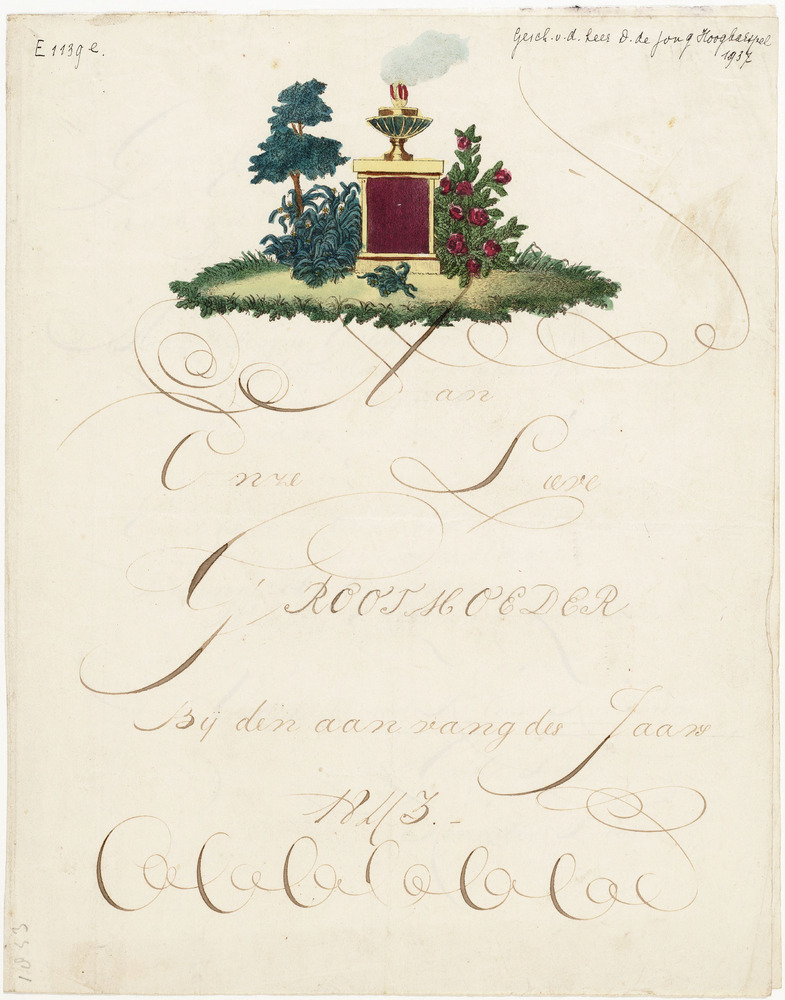 E 1139 e.
Gesch. v. d. heer D. de Jong Hoogkarspel
1937
Aan
Onze Lieve
GROOTMOEDER
Bij den aanvang des Jaars
1843.